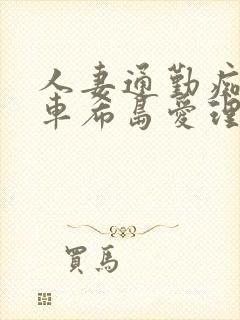 人妻通勤痴
車希島愛理
買馬